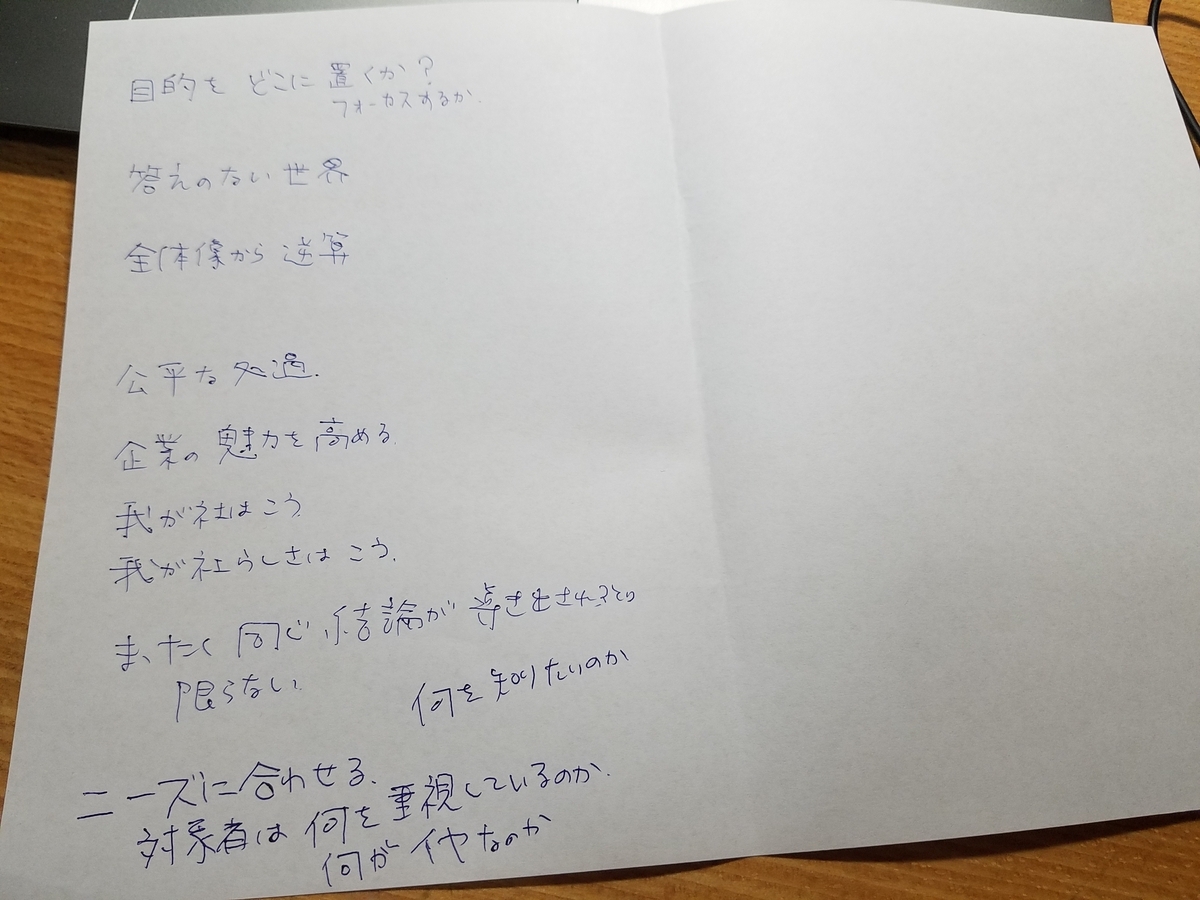 目的を どこに 置くか?
フォーカスするか.
答えのない世界
全体像から 逆算
公平な処遇.
企業の魅力を高める.
我が社はこう
我が社らしさはこう.
まったく同じ結論が導き出されると
限らない.
何を知りたいのか
ニーズに合わせる.
対象者は何を重視しているのか.
何がイヤなのか